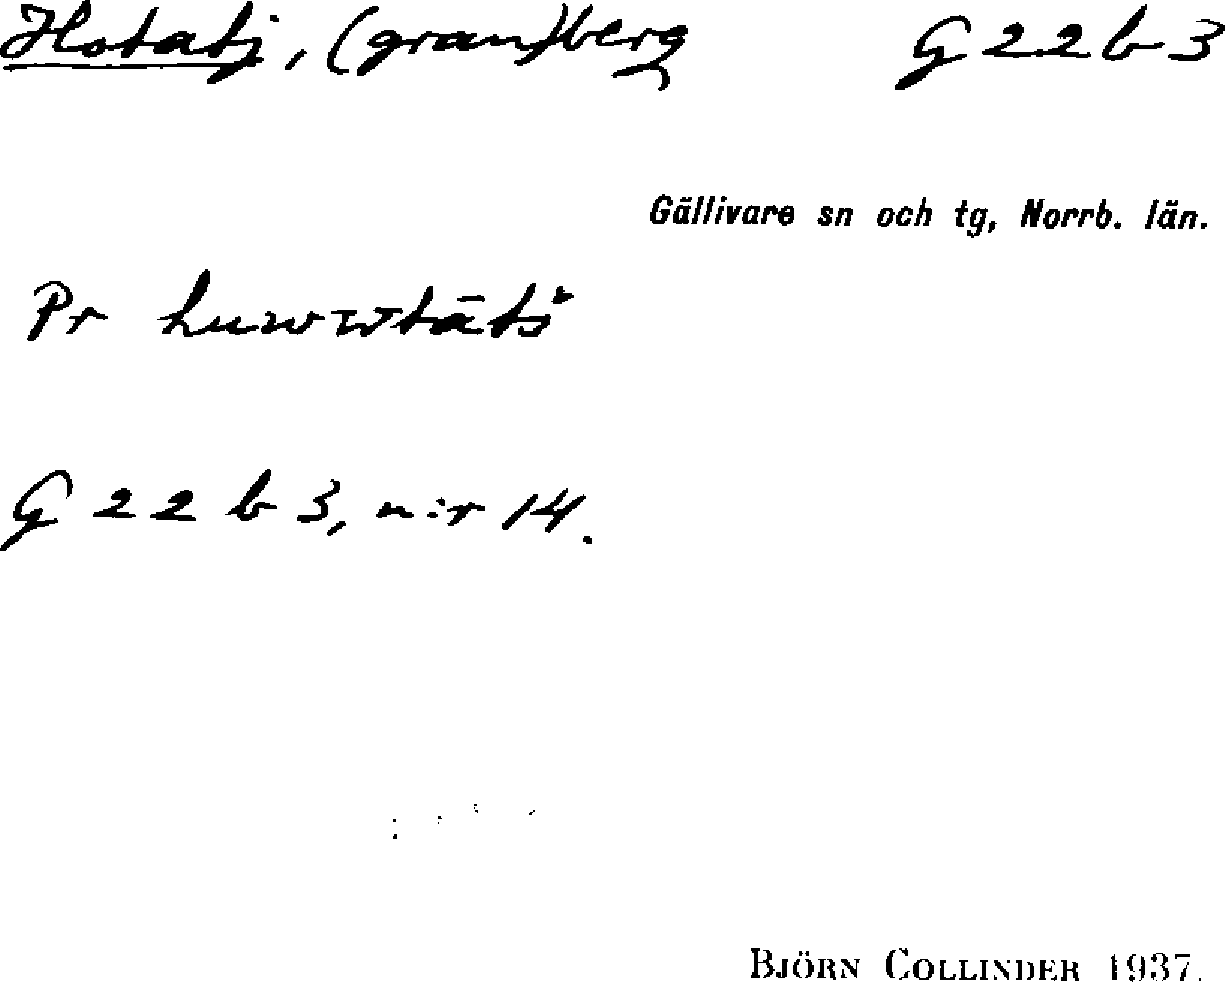 Hotatj, (gran)berg G 22 b 3
Gällivare sn och tg, Norrb. län.
Pr
G 22 b 3, n:r 14.
BJÖRN COLLINDER 1937.